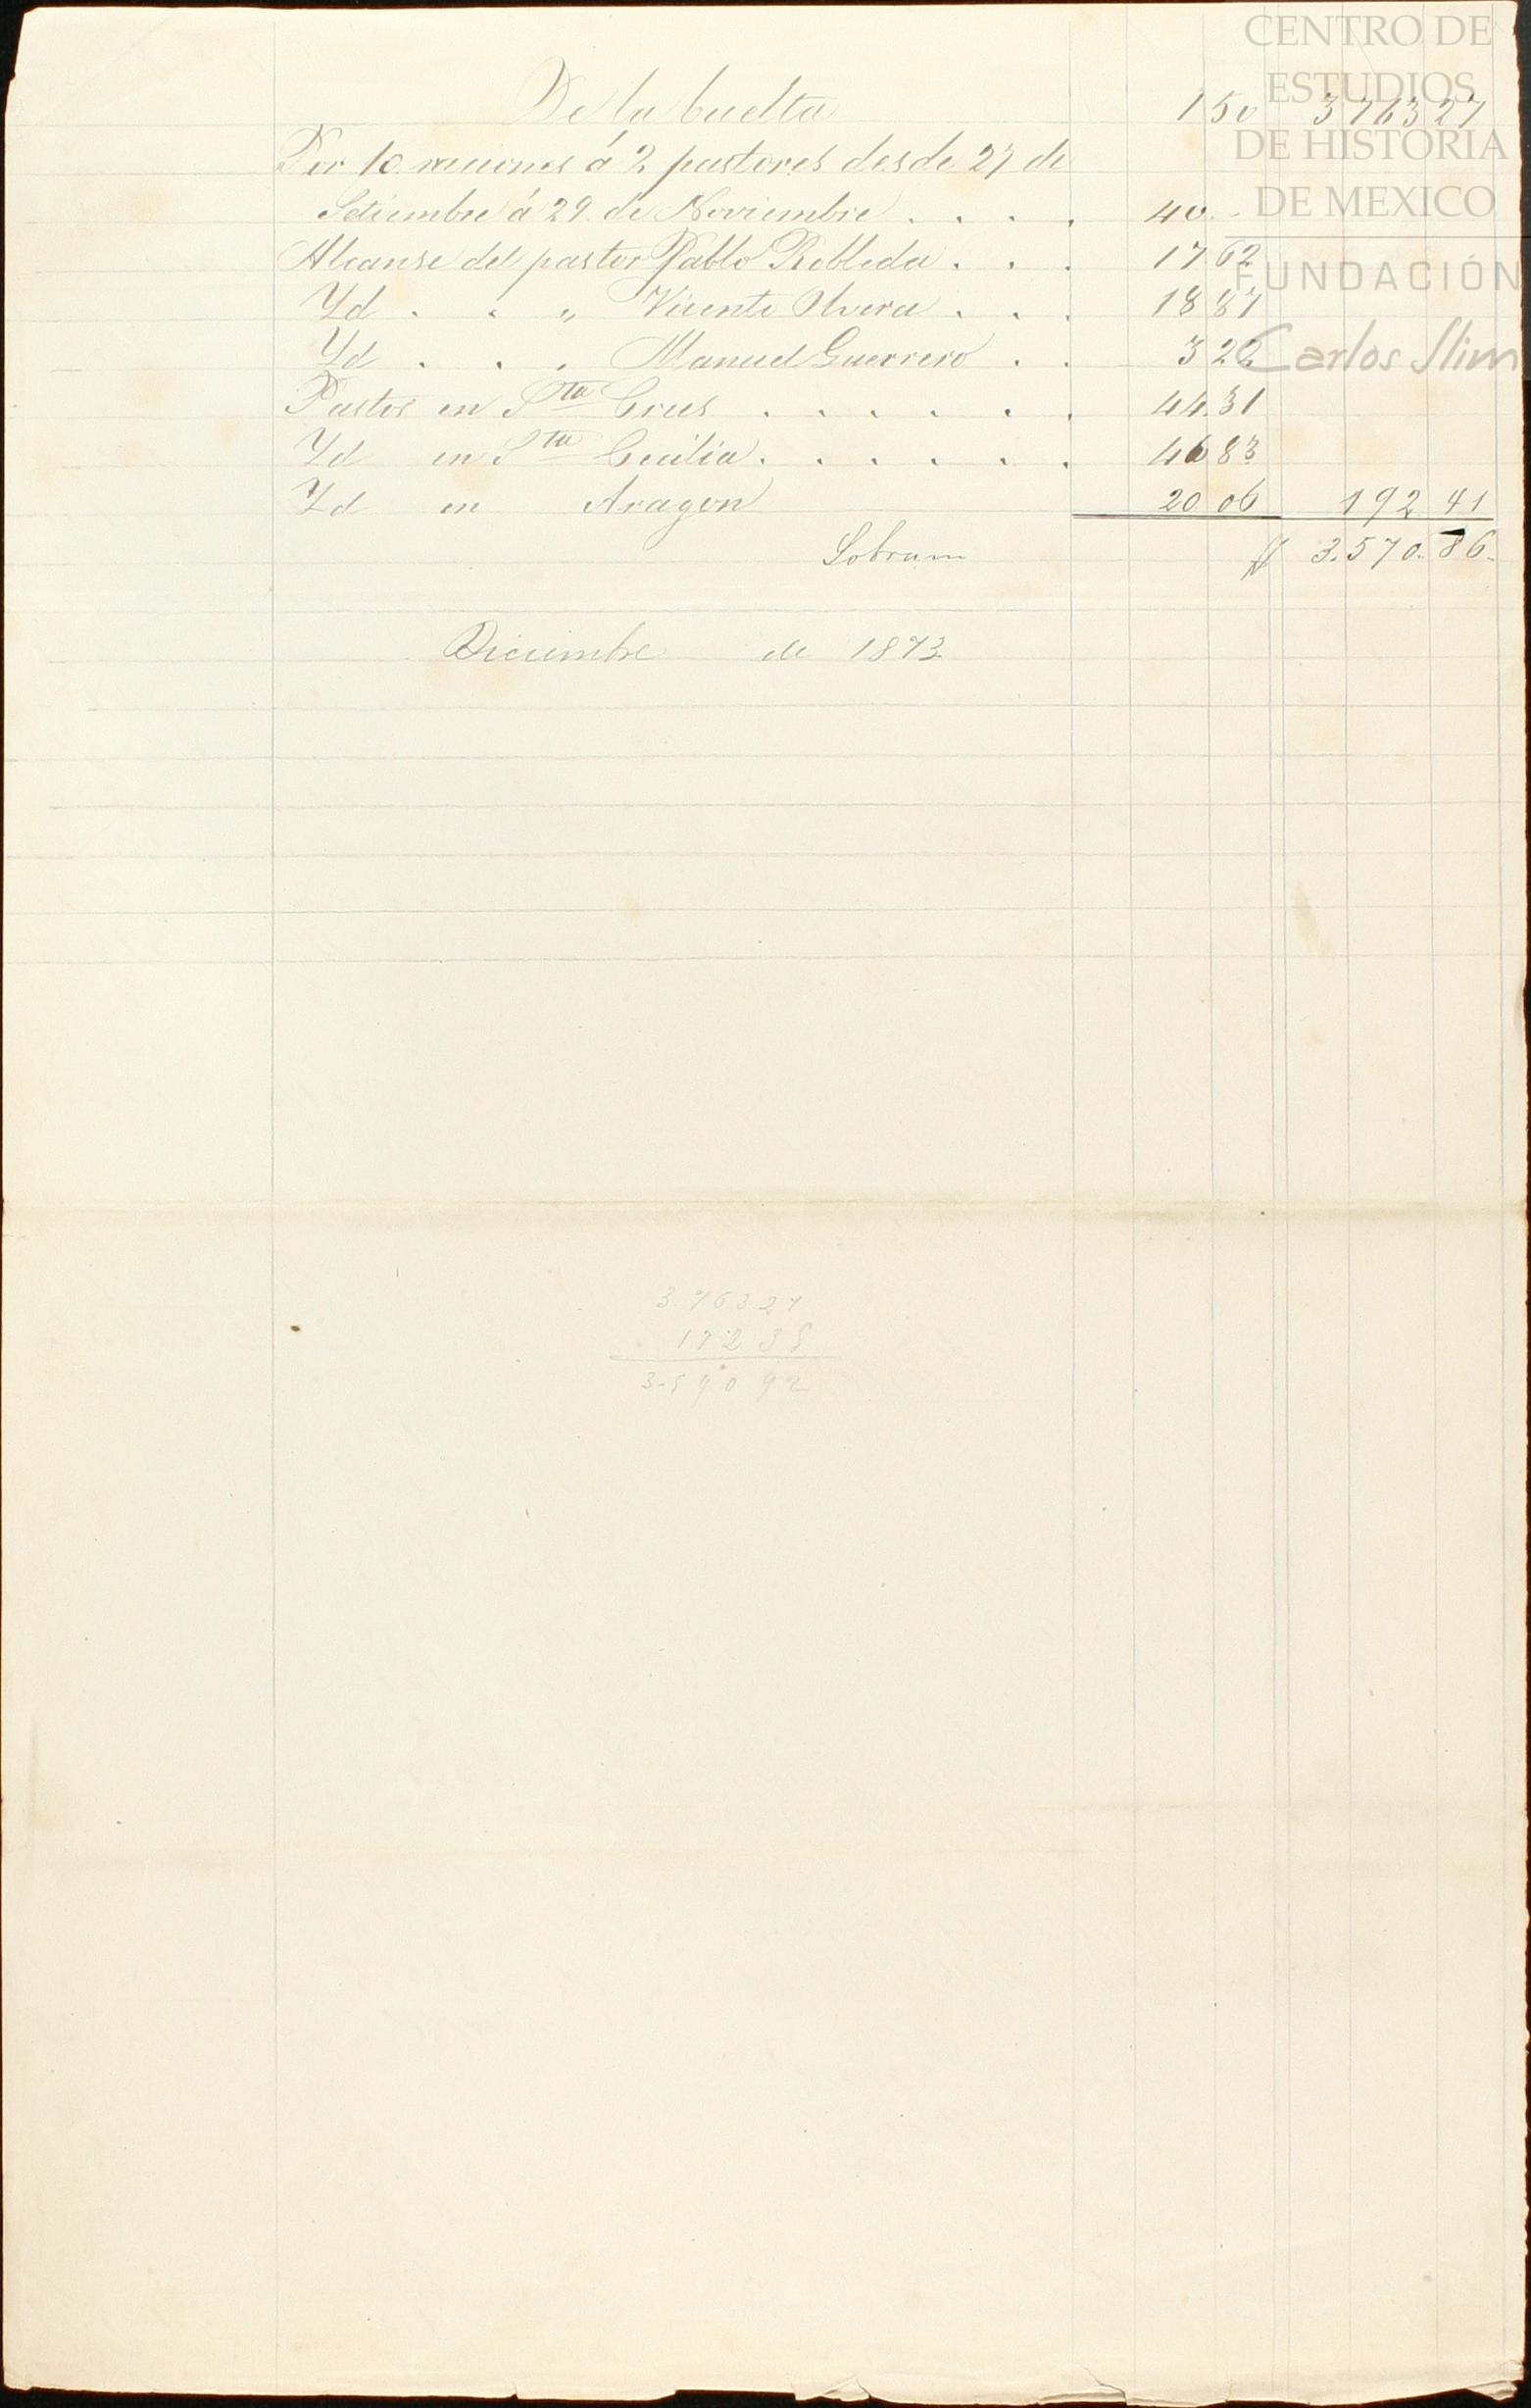 CENTRO DE
ESTUDIOS
DE HISTORIA
DE MEXICO
FUNDACIÓN
Carlos Slim
De la buelta 1 50 3763 27
Por 10 raciones á 2 pastores desde 27 de
Setiembre á 29 de Noviembre . . . . 40 . -
Alcanse del pastor Pablo Robleda . . . 17 62
Yd . . „ Vicente Olvera . . . 18 87
Yd . . . Manuel Guerrero . . 3 22
Pastos en Sta Crus . . . . . . 44.31
Yd en Sta Cecilia . . . . . . 46 83
Yd en Aragon 20 06 192 41
Sobran $ 3.570. 86.
Diciembre de 1873
3.763 27
172 35
3.590 92